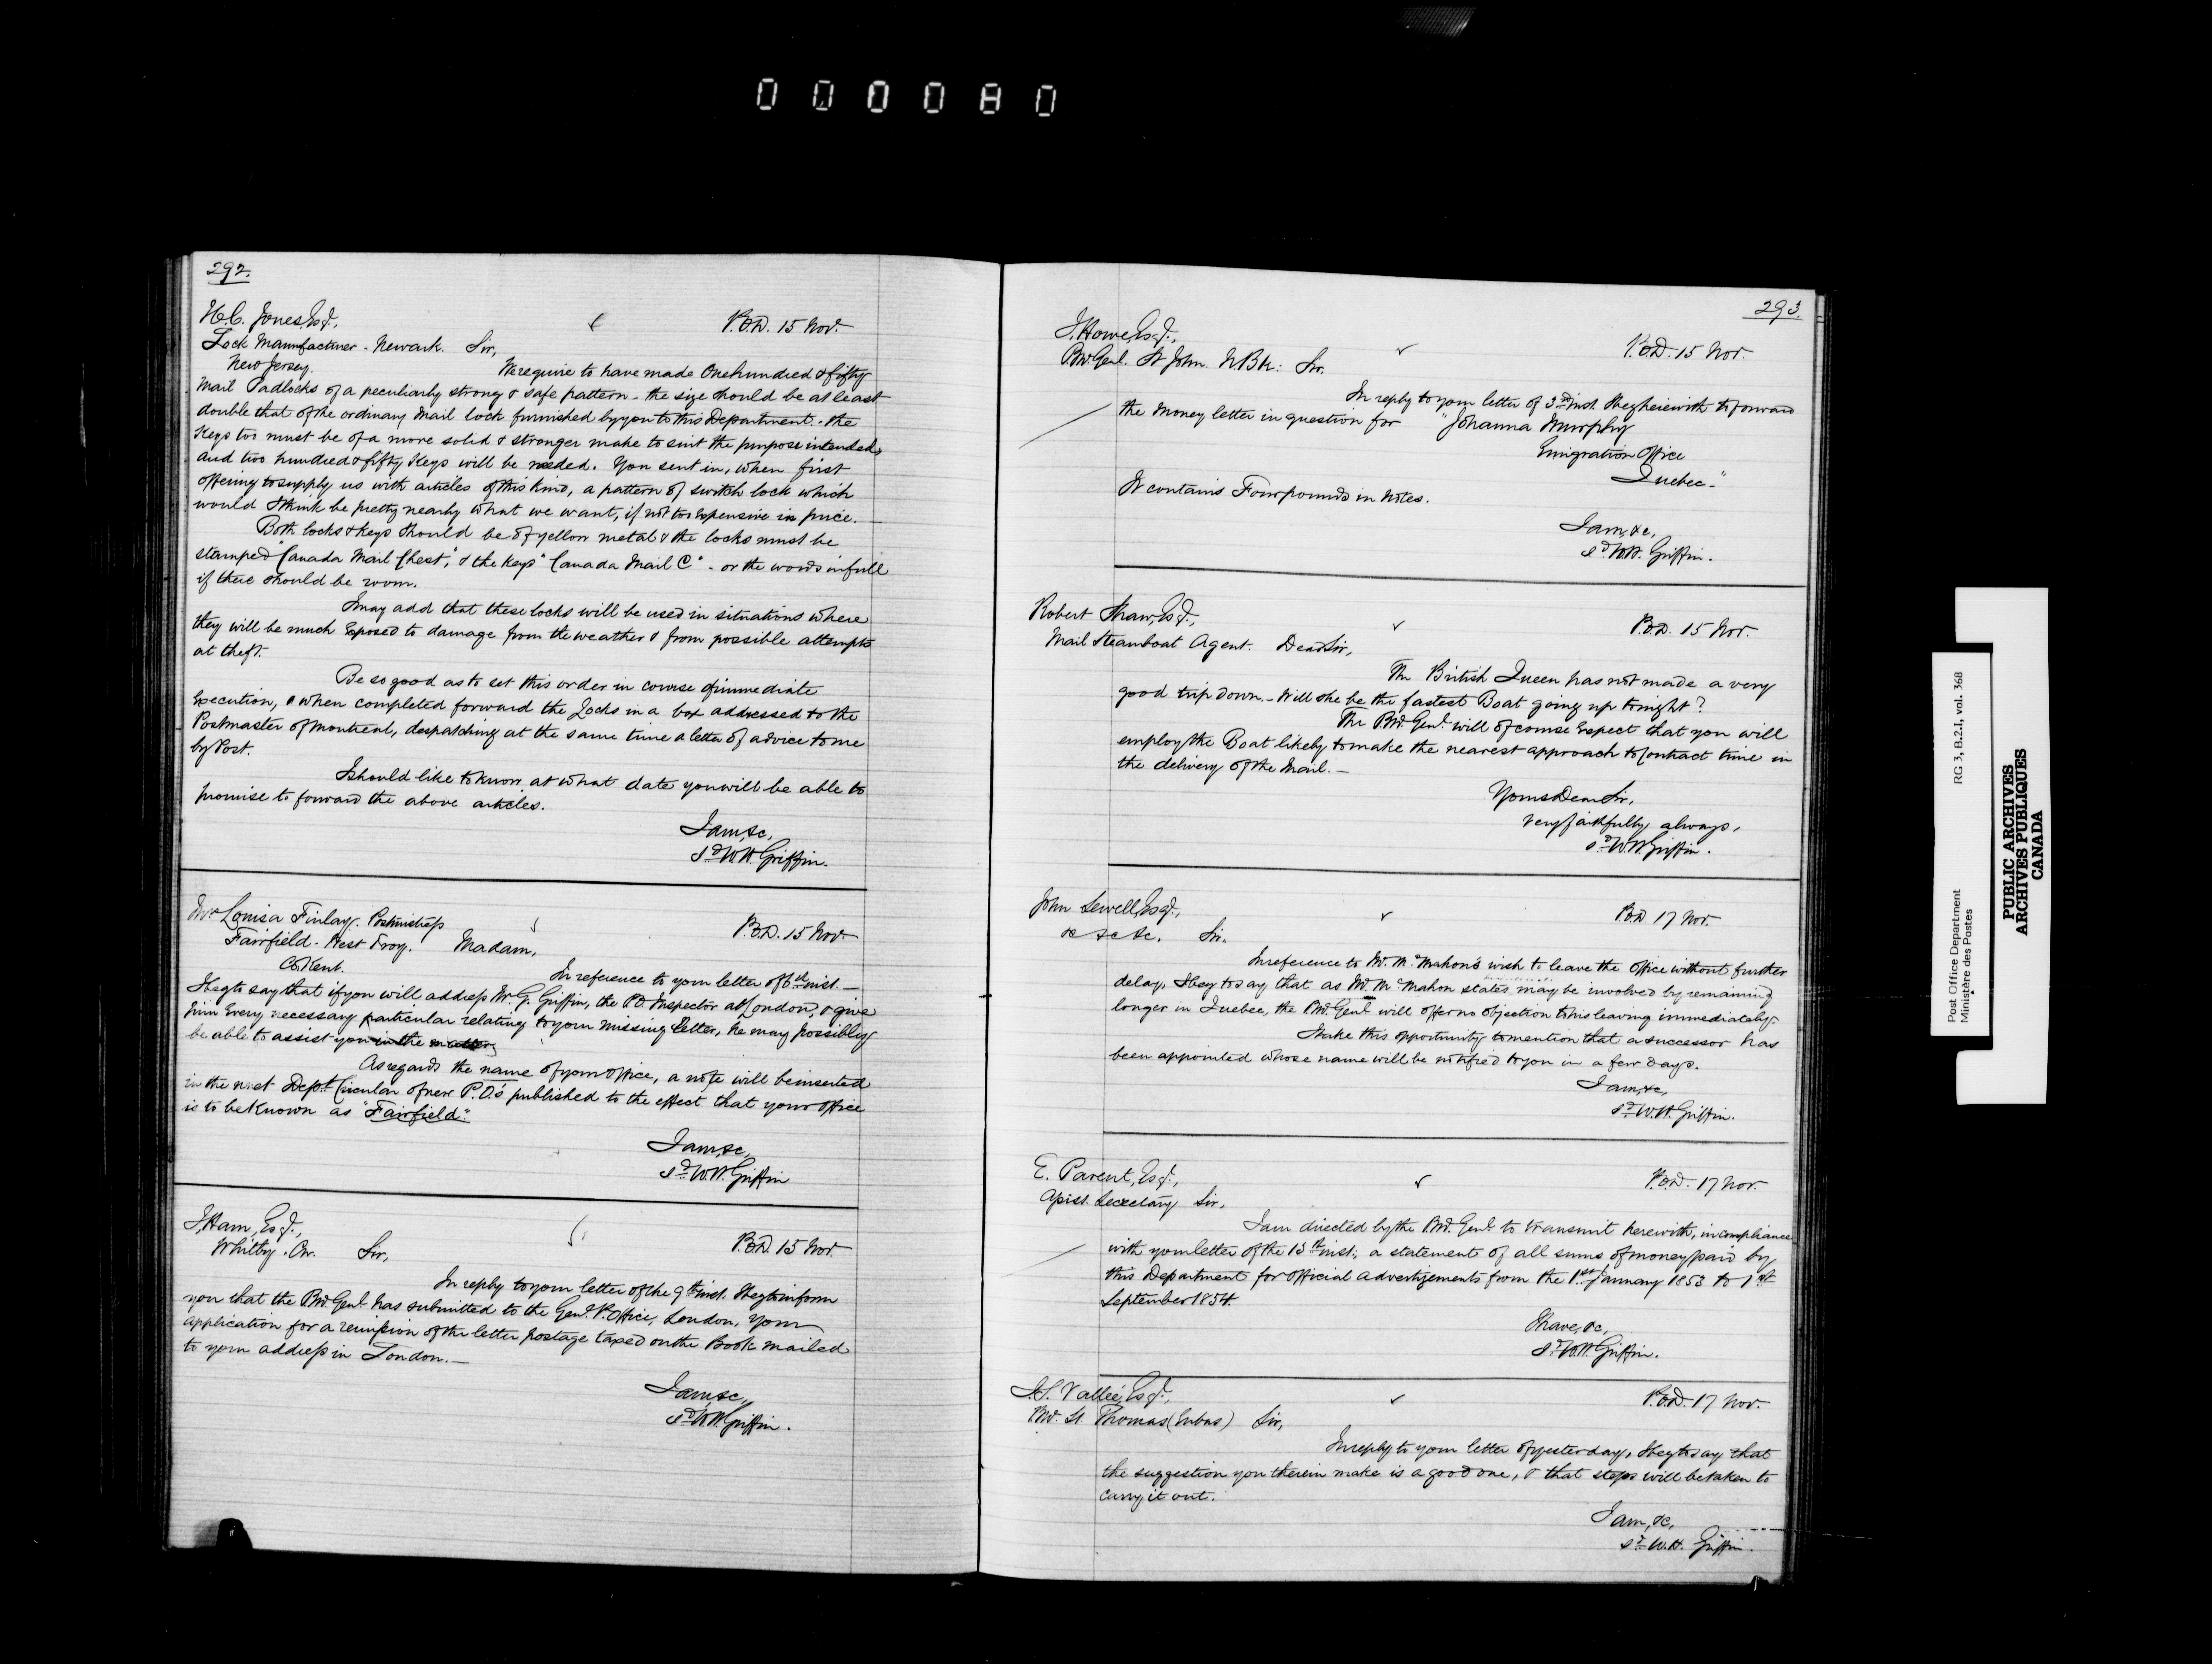 000080
292.
H.C. Jones, Esqr.,
P.O.D. 15 Nov.
Lock Manufacturer - Newark. Sir,
New Jersey.
We require to have made One hundred & fifty
Mail Padlocks of a peculiarly strong & safe pattern - the size should be at least
double that of the ordinary Mail lock furnished by you to this Department. - the
Keys too must be of a more solid & stronger make to suit the purpose intended,
and two hundred & fifty Keys will be needed. You sent in, when first
offering to supply us with articles of this kind, a pattern of switch lock which
would I think be pretty nearly what we want, if not too expensive in price. -
Both locks & keys should be of yellow metal & the locks must be
stamped "Canada Mail Chest", & the keys "Canada Mail C" - or the words in full
if there should be room.
I may add that these locks will be used in situations where
they will be much exposed to damage from the weather & from possible attempts
at theft.
Be so good as to set this order in course of immediate
execution, & when completed forward the Locks in a box addressed to the
Postmaster of Montreal, despatching at the same time a letter of advice to me
by Post.
I should like to know at what date you will be able to
promise to forward the above articles.
I am, &c,
Sd W.H. Griffin.
Mrs Louisa Finlay. Postmistress
P.O.D. 15 Nov.
Fairfield - West Troy. Madam,
Co. Kent.
In reference to your letter of 6th inst. -
I beg to say that if you will address Mr. G. Griffin, the P.O. Inspector at London, & give
him every necessary particular relating to your missing letter, he may possibly
be able to assist you in the matter
As regards the name of your Office, a note will be inserted
in the next Dept. Circular of new P.O.'s published to the effect that your Office
is to be known as "Fairfield."
I am, &c,
Sd W.H. Griffin
J. Ham, Esqr.,
P.O.D. 15 Nov.
Whitby. Sir,
In reply to your letter of the 9th inst. I beg to inform
you that the P.M. Genl. has submitted to the Genl. P. Office, London, your
application for a remission of the letter postage taxed on the Book mailed
to your address in London. -
I am, &c,
Sd W.H. Griffin.
293.
J. Howe, Esqr.,
P.O.D. 15 Nov.
P.M. Genl. St John. N. Bk: Sir.
In reply to your letter of 3rd inst. I beg herewith to forward
the money letter in question for "Johanna Murphy
Emigration Office
Quebec -"
It contains Four pounds in Notes.
I am, &c,
Sd W.H. Griffin.
Robert Shaw, Esqr.,
P.O.D. 15 Nov.
Mail Steamboat Agent. Dear Sir,
The British Queen has not made a very
good trip down. - Will she be the fastest Boat going up tonight?
The P.M. Genl. will of course expect that you will
employ the Boat likely to make the nearest approach to Contract time in
the delivery of the Mail. -
Yours Dear Sir,
very faithfully always,
Sd W.H. Griffin.
John Sewell, Esqr.,
P.O.D. 17 Nov.
&c &c &c. Sir.
In reference to Mr. McMahon's wish to leave the Office without further
delay, I beg to say that as Mr. McMahon states may be involved by remaining
longer in Quebec, the P.M. Genl. will offer no objection to his leaving immediately.
I take this opportunity to mention that a successor has
been appointed whose name will be notified to you in a few days.
I am, &c,
Sd W.H. Griffin.
E. Parent, Esqr.,
P.O.D. 17 Nov.
Assist. Secretary Sir,
I am directed by the P.M. Genl. to transmit herewith, in compliance
with your letter of the 13th inst., a statement of all sums of money paid by
this Department for Official Advertizements from the 1st January 1853 to 1st
September 1854.
I have, &c,
Sd W.H. Griffin.
Vallée, Esqr.,
P.O.D. 17 Nov.
P.M. St. Thomas Sir,
In reply to your letter of yesterday, I beg to say that
the suggestion you therein make is a good one, & that steps will be taken to
carry it out.
I am, &c,
Sd W.H. Griffin.
Post Office Department RG 3, B.2.I, vol. 368
Ministère des Postes
PUBLIC ARCHIVES
ARCHIVES PUBLIQUES
CANADA